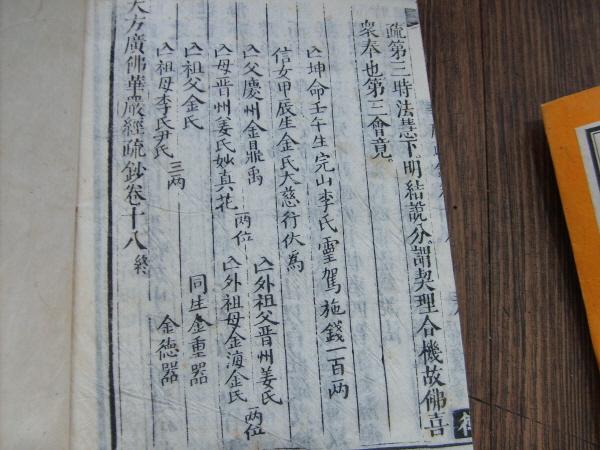 疏第三時法慧下明結說分謂契理合機故佛喜
衆奉也第三會竟
亡坤命壬午生完山李氏靈駕施錢一百兩
信女甲辰生金氏大慈行伏爲
亡父慶州金鼎禹 兩位
亡外祖父晋州姜氏 兩位
亡母晋州姜氏妙眞花
亡外祖母金海金氏
亡祖父金氏
同生金重器
亡祖母李氏尹氏 三兩
金德器
大方廣佛華嚴經疏鈔卷十八 終